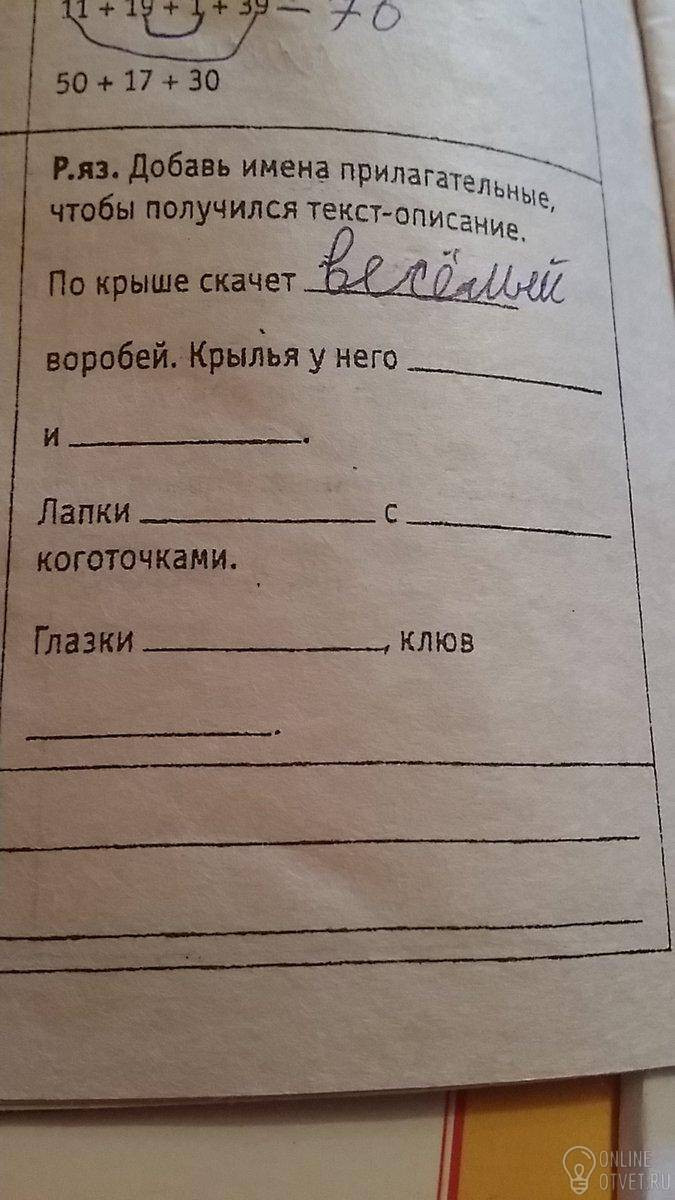 11 + 19 + 1 + 39 = 70
50 + 17 + 30
Р.яз. Добавь имена прилагательные,
чтобы получился текст-описание.
По крыше скачет весёлый
воробей. Крылья у него
и .
Лапки с
коготочками.
Глазки , клюв
.
ONLINE
OTVET.RU